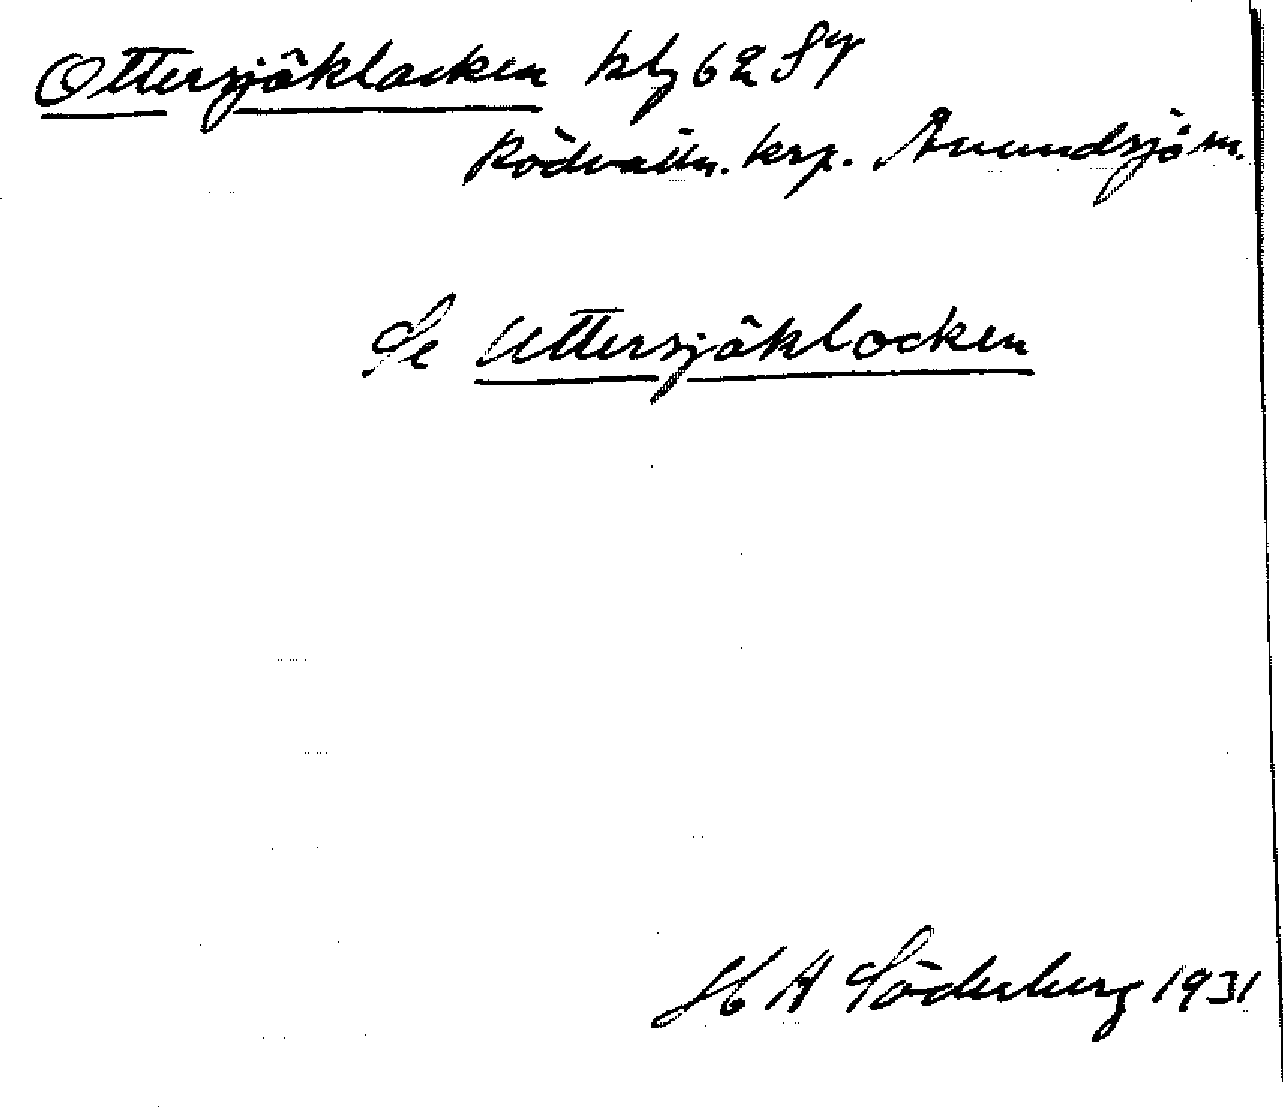 Ottersjöklacken kbg 62 Sy
Rödvattn. krp. Anundsjö sn.
Se Uttersjöklocken
H A Söderberg 1931